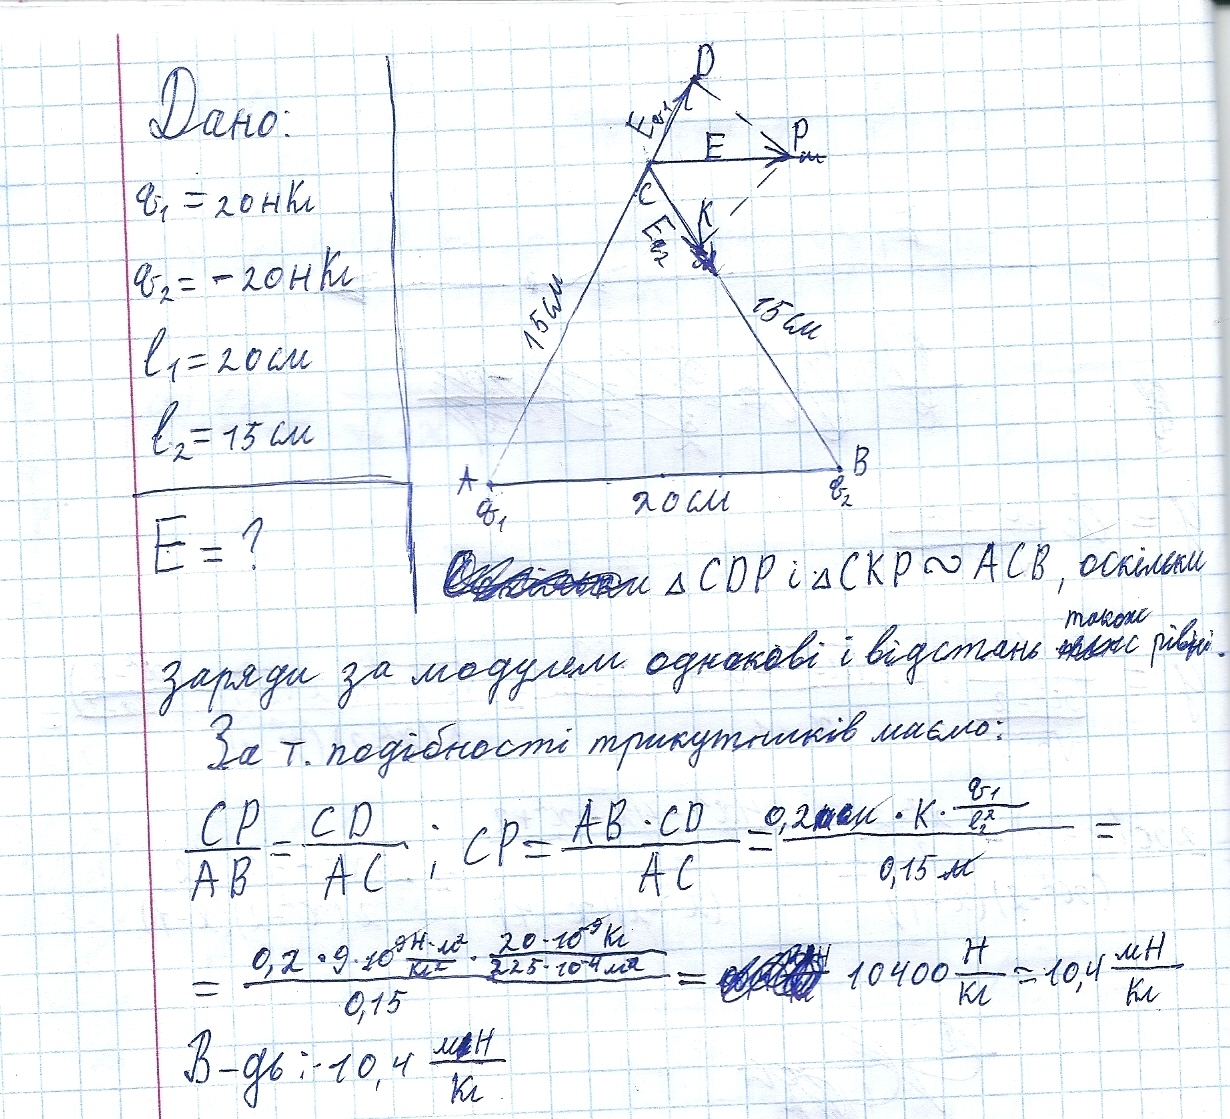 Дано:
q₁ = 20 нКл
q₂ = -20 нКл
l₁ = 20 см
l₂ = 15 см
E = ?
D
E
P
E
C
K
E
15 см
15 см
A
B
q₁
20 см
q₂
△CDP і △CKP ~ ACB, оскільки
заряди за модулем однакові і відстань також рівні.
За т. подібності трикутників маємо:
CP/AB = CD/AC ; CP = AB · CD/AC = 0,2 · K · q₁/l₂²/0,15 м =
= 0,2 · 9 · 10⁹ Н·м²/Кл² · 20·10⁻⁹ Кл/225·10⁻⁴ м²/0,15 = 10400 Н/Кл = 10,4 мН/Кл
В-дь: 10,4 мН/Кл